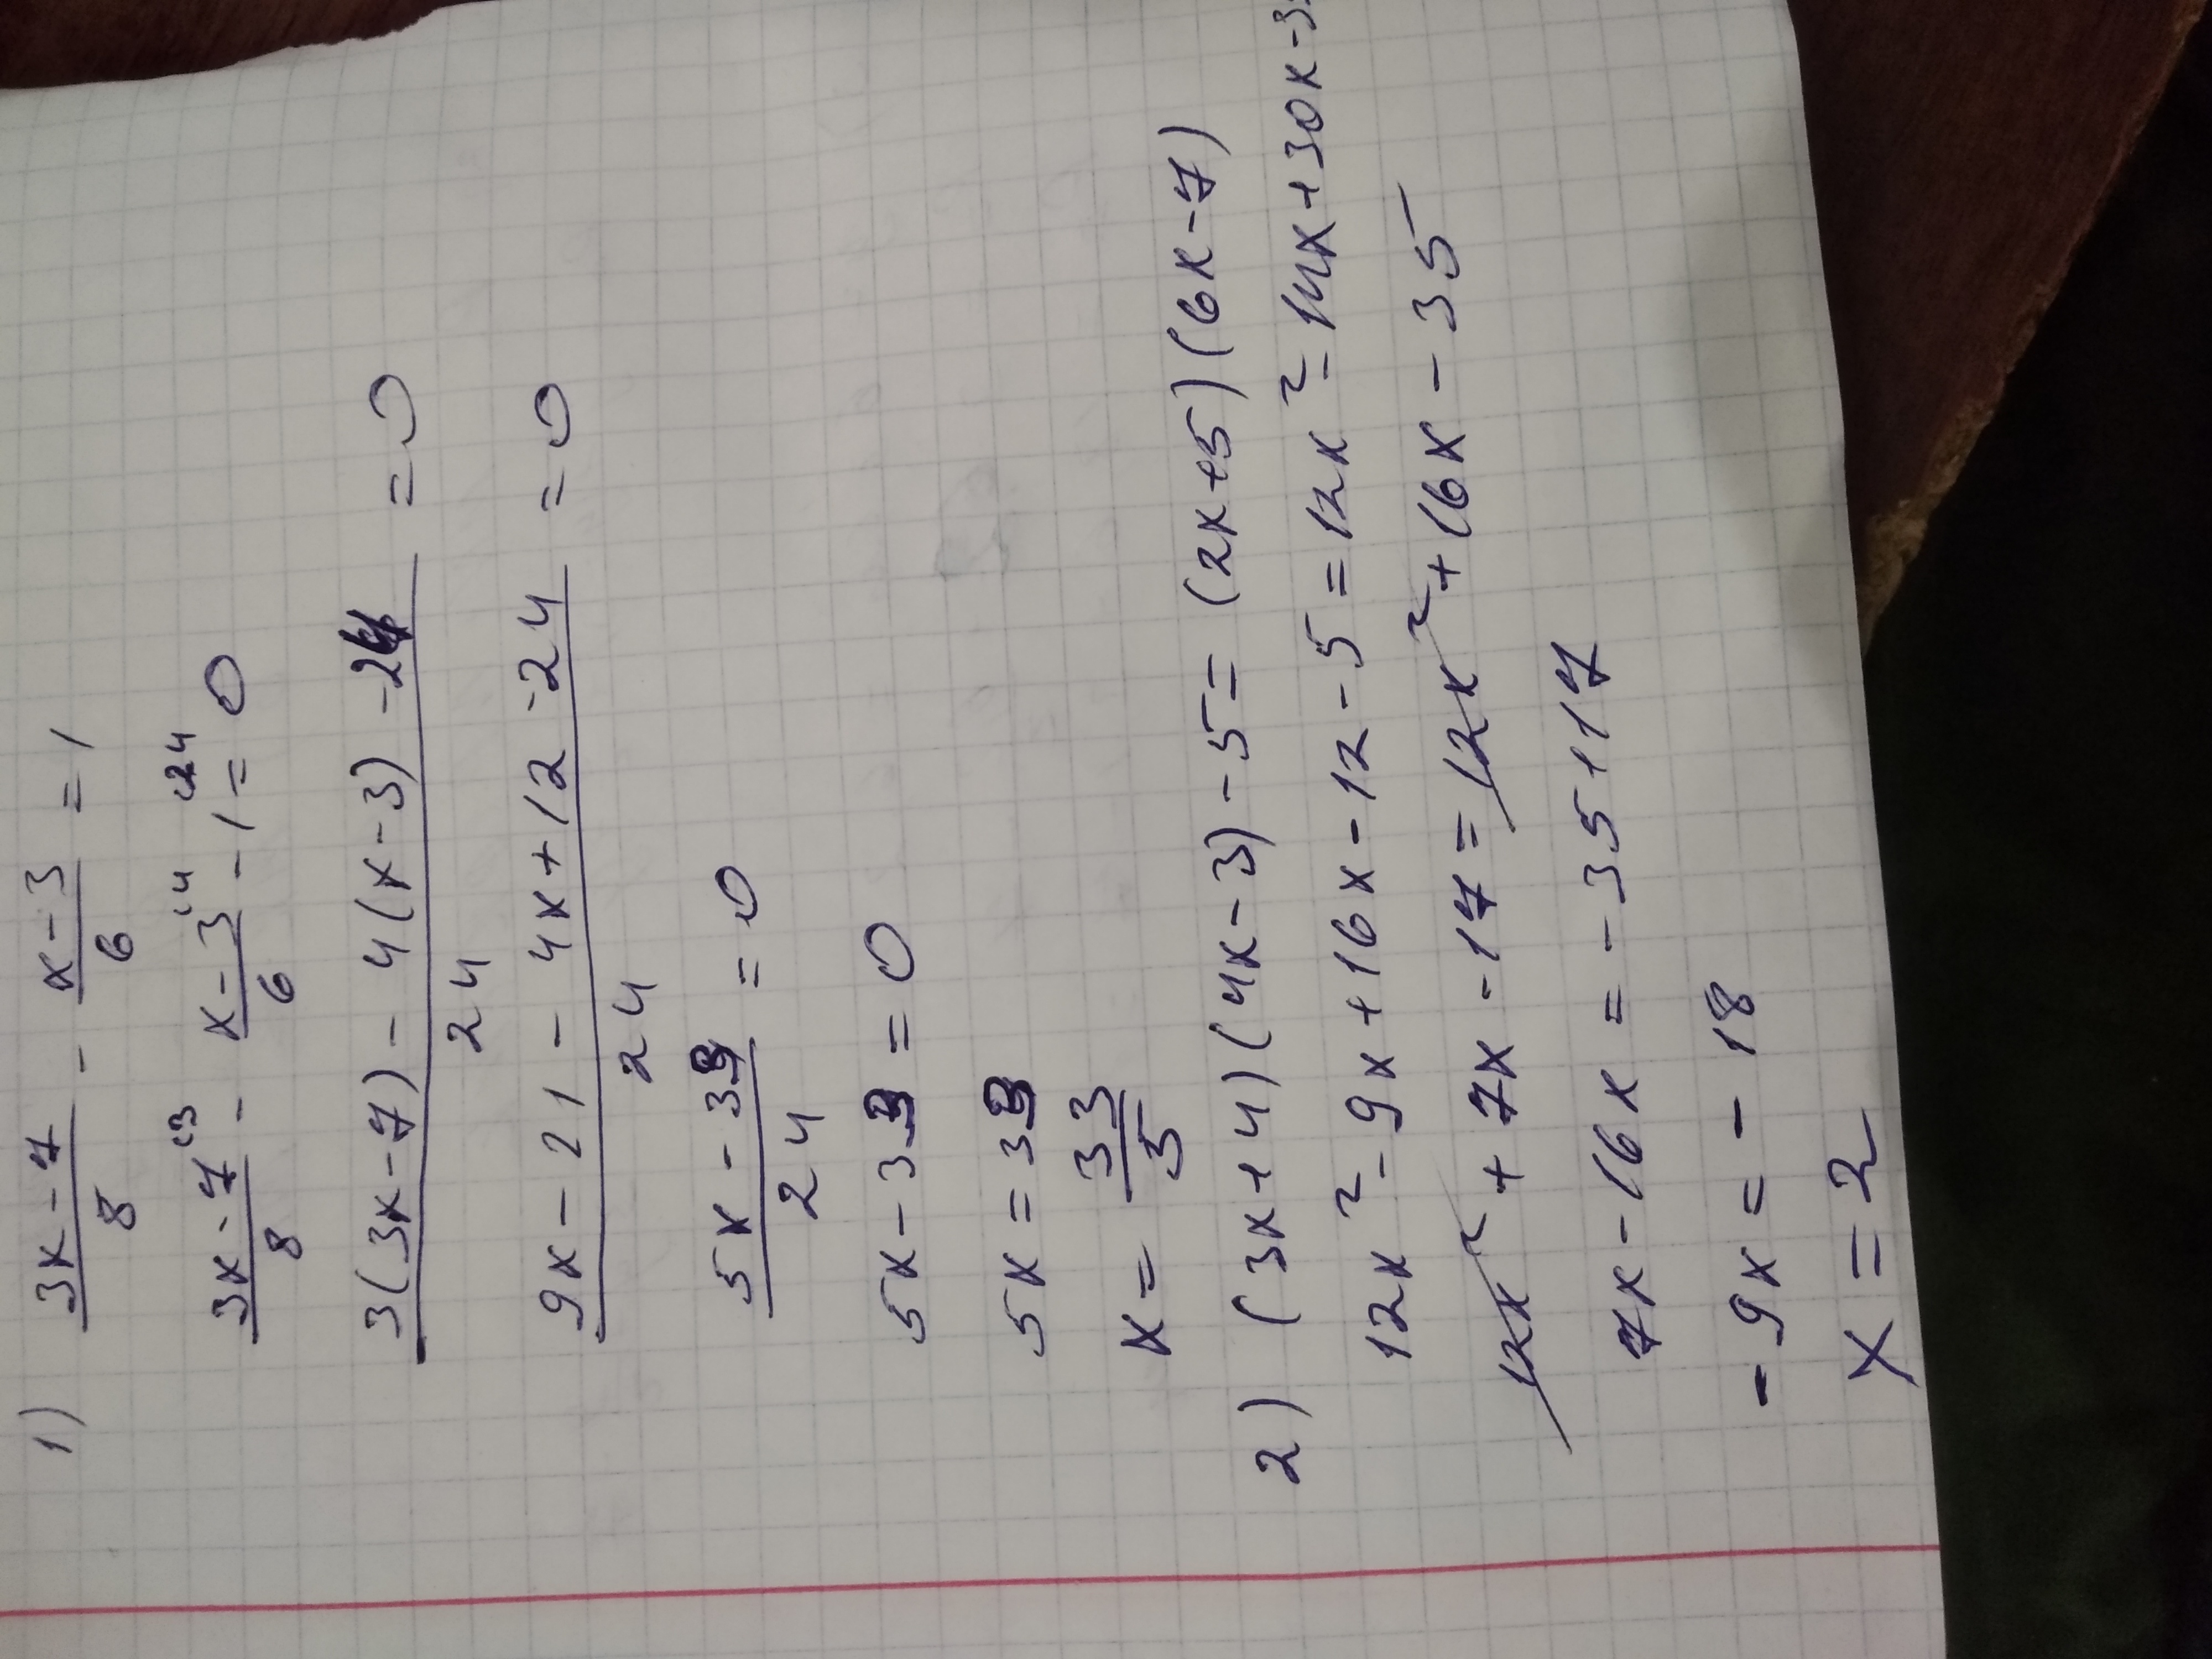 1) (3x-7)/8 - (x-3)/6 = 1
(3x-7)/8 - (x-3)/6 - 1 = 0
(3(3x-7) - 4(x-3) - 24)/24 = 0
(9x - 21 - 4x + 12 - 24)/24 = 0
(5x - 33)/24 = 0
5x - 33 = 0
5x = 33
x = 33/5
2) (3x+4)(4x-3) - 5 = (2x+5)(6x-7)
12x² - 9x + 16x - 12 - 5 = 12x² - 14x + 30x - 3
12x² + 7x - 17 = 12x² + 16x - 35
7x - 16x = -35 + 17
-9x = -18
x = 2